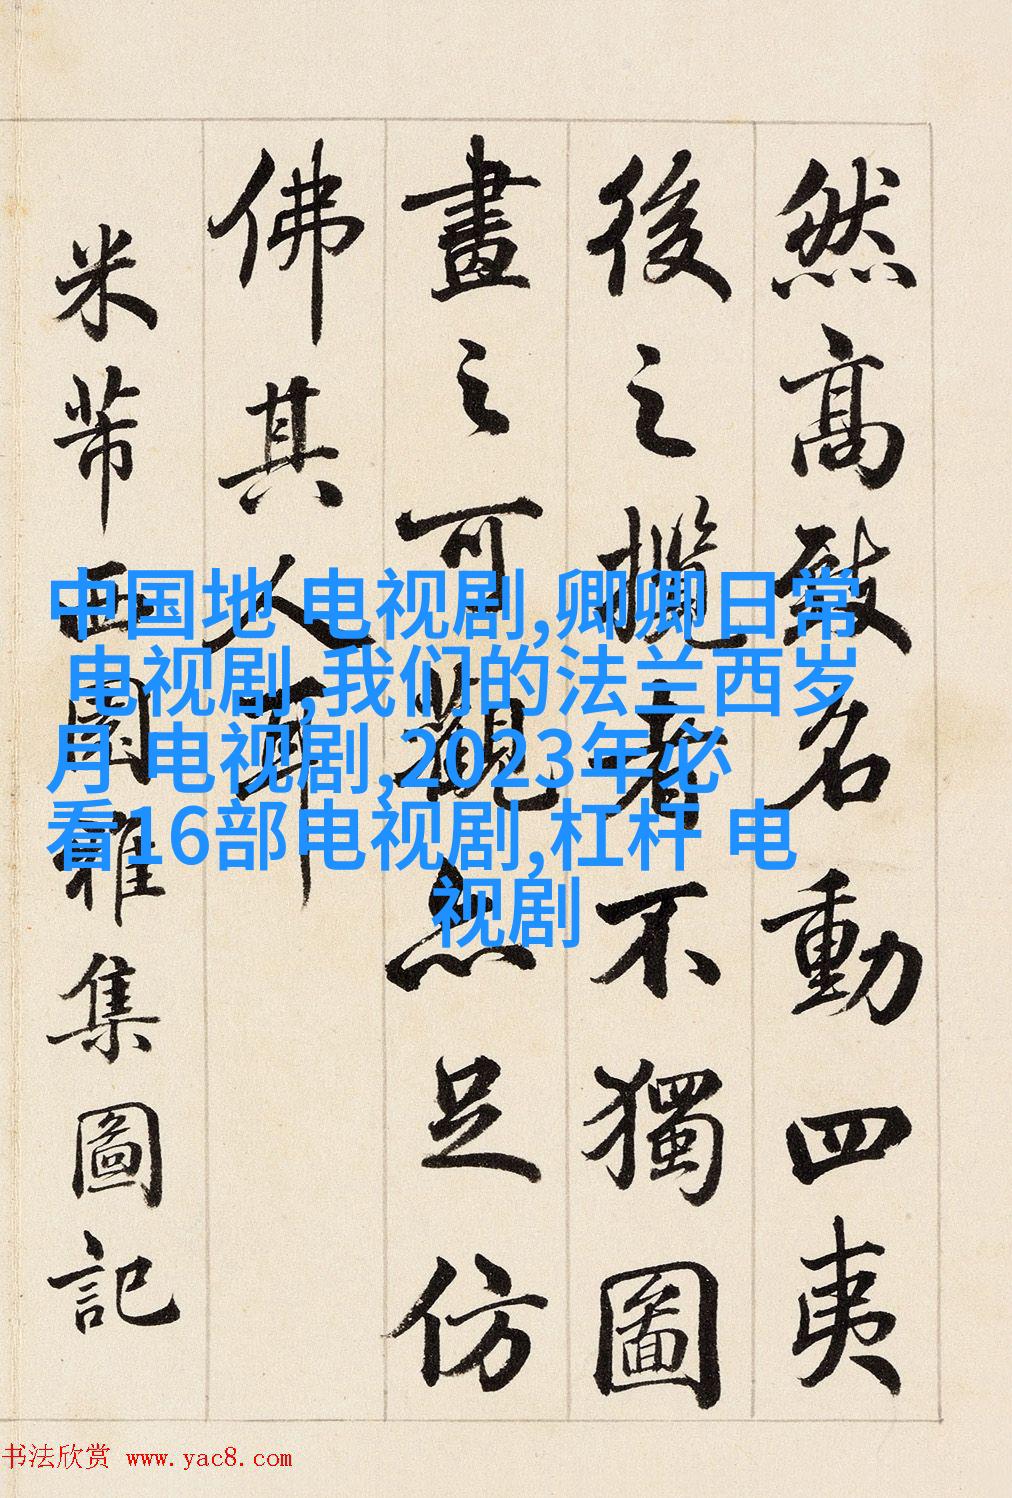 然高致名動四夷
後之攬者不獨圖
畫之可觀亦足仿
佛其人耶
米芾西園雅集圖記
中国地 电视剧,卿卿日常
电视剧,我们的法兰西岁
月 电视剧,2023年必
看16部电视剧,杠杆 电
视剧
书法欣赏 www.yac8.com